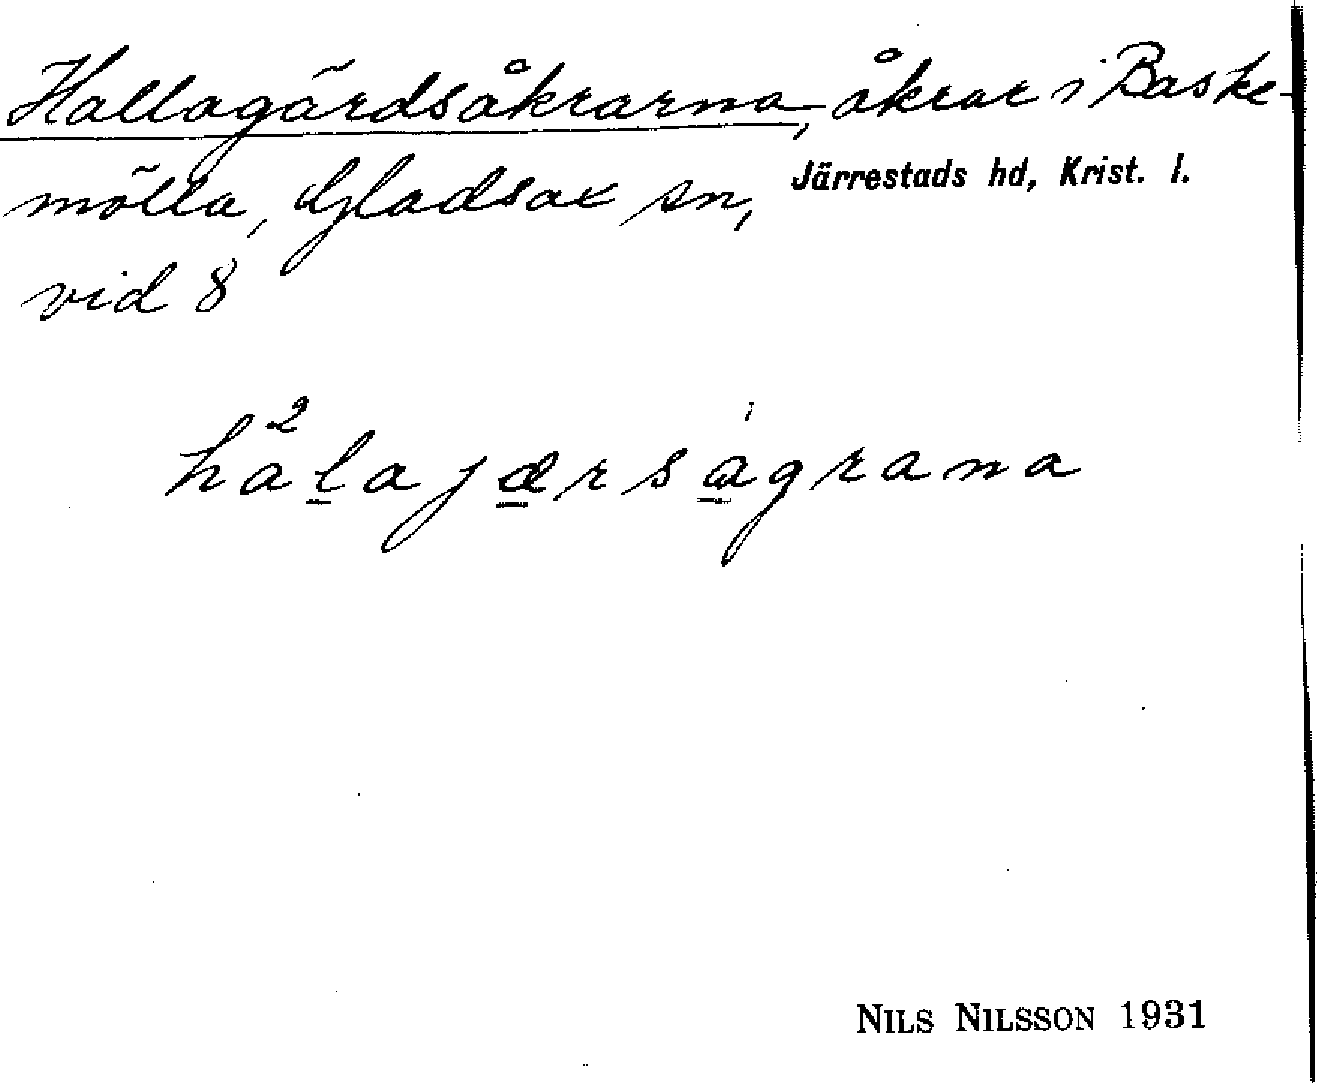 Hallagärdsåkrarna, åkrar i Baske-
mölla, Gladsax sn, Järrestads hd, Krist. l.
vid 8
hå²l̲ajæ̲rsa̲̍grana
NILS NILSSON 1931